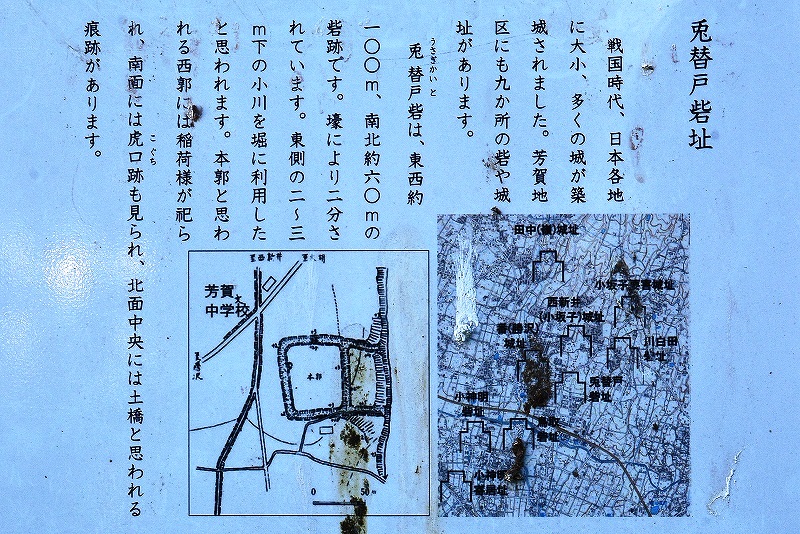 兎替戸砦址
戦国時代、日本各地
に大小、多くの城が築
城されました。芳賀地
区にも九か所の砦や城
址があります。
うさぎかいと
兎替戸砦は、東西約
一〇〇m、南北約六〇mの
砦跡です。壕により二分さ
れています。東側の二〜三
m下の小川を堀に利用した
と思われます。本郭と思わ
れる西郭には稲荷様が祀ら
こぐち
れ、南面には虎口跡も見られ、北面中央には土橋と思われる
痕跡があります。
田中(嶺)城址
小坂子要害城址
西新井
(小坂子)城址
嶺(勝沢)
城址
川白田
砦址
兎替戸
砦址
小神明
砦址
鳥取
砦址
小神明
芳賀
中学校
本郭
0 50m